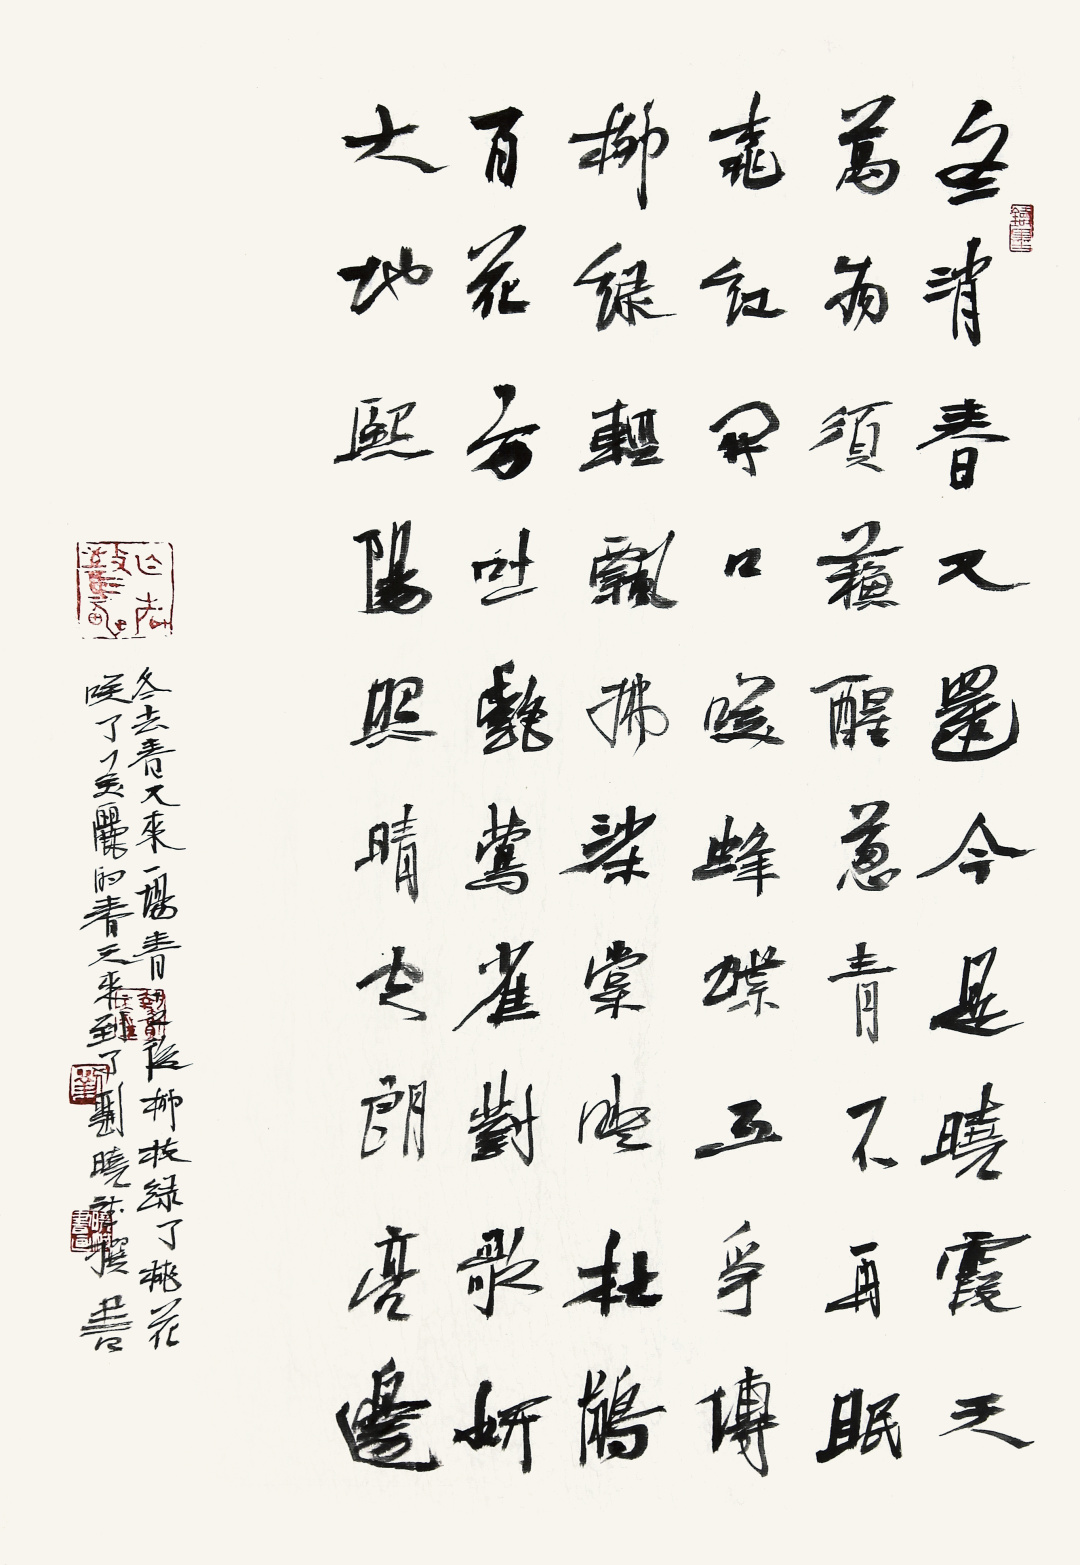 冬消春又還今是曉霞天
萬物須蘇醒蔥青不再眠
桃紅開口咲蜂蝶互爭傳
柳綠輕飄拂棠映杜鵑
百花方吐艷鶯雀對歌妍
大地熙陽照晴空朗亮邊
冬去春又來一場春後柳枝綠了桃花
咲了美麗的春天來到了劉曉撰書